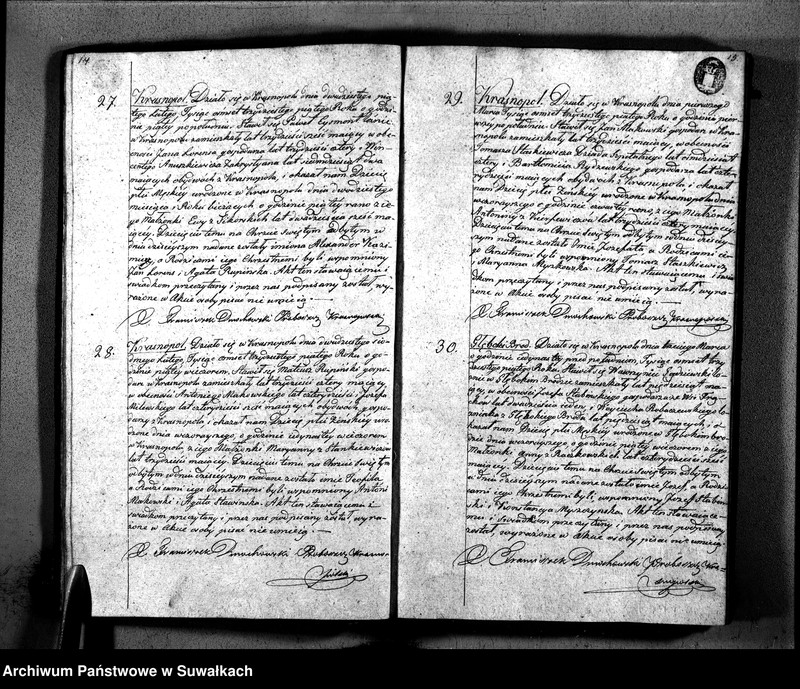 14
27.
Krasnopol. Działo się w Krasnopolu dnia dwudziestego pią-
tego Lutego Tysiąc ośmset trzydziestego piątego Roku o godzi-
nie piątej popołudniu. Stawił się Paweł
w Krasnopolu zamieszkały lat trzydzieści sześć mający w obe-
cności Jana Lorenca gospodarza lat trzydzieści cztery i Win-
centego Zakrystyana lat siedmdziesiąt dwa
mających obydwóch z Krasnopola, i okazał nam Dziecię
płci Męskiej urodzone w Krasnopolu dnia dwudziestego
miesiąca i Roku bieżących o godzinie piątej rano z je-
go Małżonki Ewy z Sikorskich lat dwadzieścia sześć ma-
jącej. Dziecięciu temu na Chrzcie Świętym odbytym w
dniu dzisiejszym nadane zostały imiona Alexander Kazi-
mierz, a Rodzicami jego Chrzestnemi byli wspomniony
Jan Lorenc i Agata Rupińska. Akt ten stawającemu i
świadkom przeczytany i przez nas podpisany został, wy-
rażone w Akcie osoby pisać nie umieją.
X. Franciszek Dmochowski Proboszcz Krasnopolski
28.
Krasnopol. Działo się w Krasnopolu dnia dwudziestego sió-
dmego Lutego, Tysiąc ośmset trzydziestego piątego Roku o go-
dzinie piątej wieczorem. Stawił się Mateusz Rupiński gospo-
darz w Krasnopolu zamieszkały lat trzydzieści cztery mający,
w obecności Antoniego Makowskiego lat czterdzieści i Józefa
Milewskiego lat czterdzieści sześć mających obydwóch gospo-
darzy z Krasnopola, i okazał nam Dziecię płci Żeńskiej uro-
dzone dnia wczorajszego, o godzinie jedynastej wieczorem
w Krasnopolu z jego Małżonki Maryanny z Stankiewiczów
lat trzydzieści mającej. Dziecięciu temu na Chrzcie Świętym
odbytym w dniu dzisiejszym nadane zostało imie Teofila
a Rodzicami jego Chrzestnemi byli wspomniony Antoni
Makowski i Agata Sławińska. Akt ten stawającemu i
świadkom przeczytany, i przez nas podpisany został, wyra-
żone w Akcie osoby pisać nie umieją.
X. Franciszek Dmochowski Proboszcz Krasno-
polski
29.
Krasnopol. Działo się w Krasnopolu dnia pierwszego
Marca Tysiąc ośmset trzydziestego piątego Roku o godzinie pier-
wszej po południu. Stawił się Jan Makowski gospodarz w Kra-
snopolu zamieszkały lat trzydzieści mający, w obecności
Tomasza Staśkiewicza Dziada Szpitalnego lat ośmdziesiąt
cztery i Bartłomieja gospodarza lat czter-
dzieści mających obydwóch z Krasnopola, i okazał
nam Dziecię płci Żeńskiej urodzone w Krasnopolu dnia
wczorajszego o godzinie czwartej rano, z jego Małżonki
Antoniny z lat trzydzieści cztery mającej.
Dziecięciu temu na Chrzcie Świętym odbytym w dniu dzisiej-
szym nadane zostało Imie Józefata a Rodzicami jej
Chrzestnemi byli wspomniony Tomasz Staśkiewicz
i Maryanna Myszkowska. Akt ten stawającemu i świa-
dkom przeczytany i przez nas podpisany został, wyra-
żone w Akcie osoby pisać nie umieją.
X. Franciszek Dmochowski Proboszcz Krasnopolski
30.
Głęboki Bród. Działo się w Krasnopolu dnia trzeciego Marca
o godzinie jedynastej przed południem, Tysiąc ośmset trzy-
dziestego piątego Roku. Stawił się Wawrzyniec
w Głębokim Brodzie zamieszkały lat pięćdziesiąt ma-
jący, w obecności Józefa Słabowskiego gospodarza ze Wsi
lat dwadzieścia jeden i Woyciecha
z Głębokiego Brodu lat pięćdziesiąt mających, i o-
kazał nam Dziecię płci Męskiej urodzone w Głębokim Bro-
dzie dnia wczorajszego o godzinie piątej wieczorem z jego
Małżonki Anny z Raczkowskich lat czterdzieści
mającej. Dziecięciu temu na Chrzcie Świętym odbytym
w dniu dzisiejszym nadane zostało imie Józef, a Rodzi-
cami jego Chrzestnemi byli, wspomniony Józef Słabo-
wski i Konstancya Myszczyńska. Akt ten stawające-
mu i świadkom przeczytany i przez nas podpisany
został, wyrażone w Akcie osoby pisać nie umieją.
X. Franciszek Dmochowski Proboszcz Kra-
snopolski
Archiwum Państwowe w Suwałkach